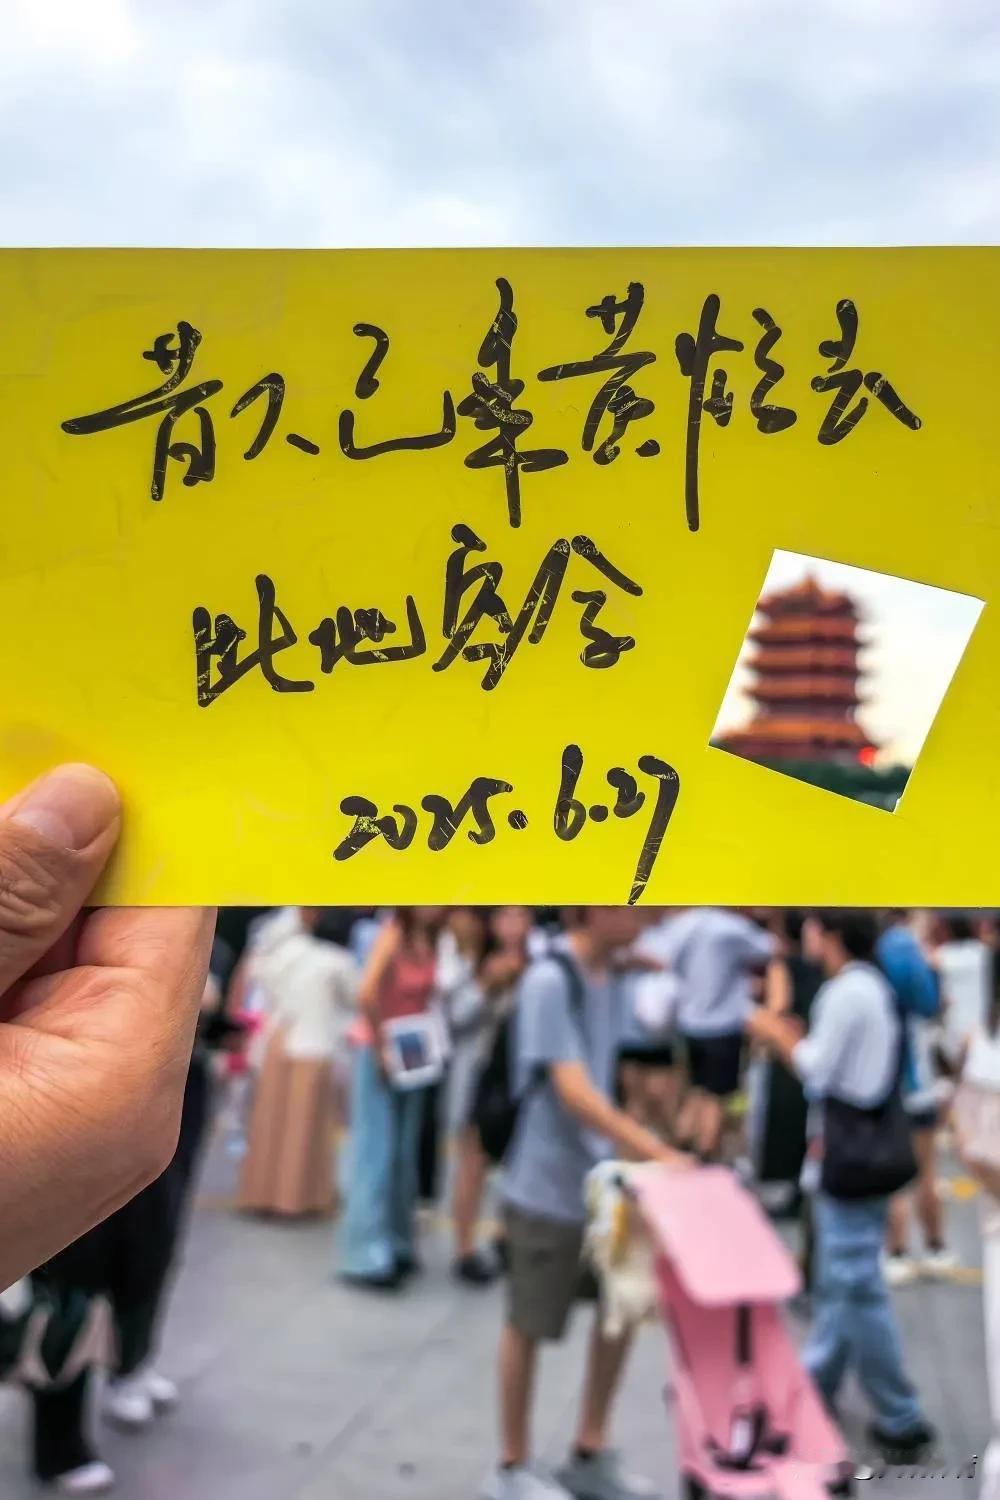 昔人已乘黄鹤去
此地空余
2025.6.27